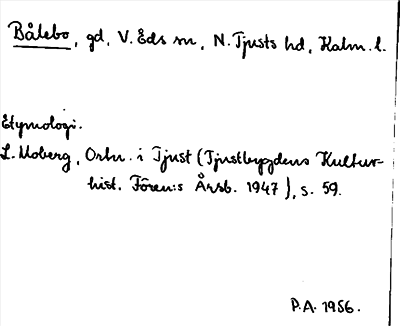 Bålebo, gd, V. Eds sn, N. Tjusts hd, Kalm. l.
Etymologi.
L. Moberg, Ortn. i Tjust (Tjustbygdens Kultur-
hist. Fören:s Årsb. 1947), s. 59.
P.A. 1956.